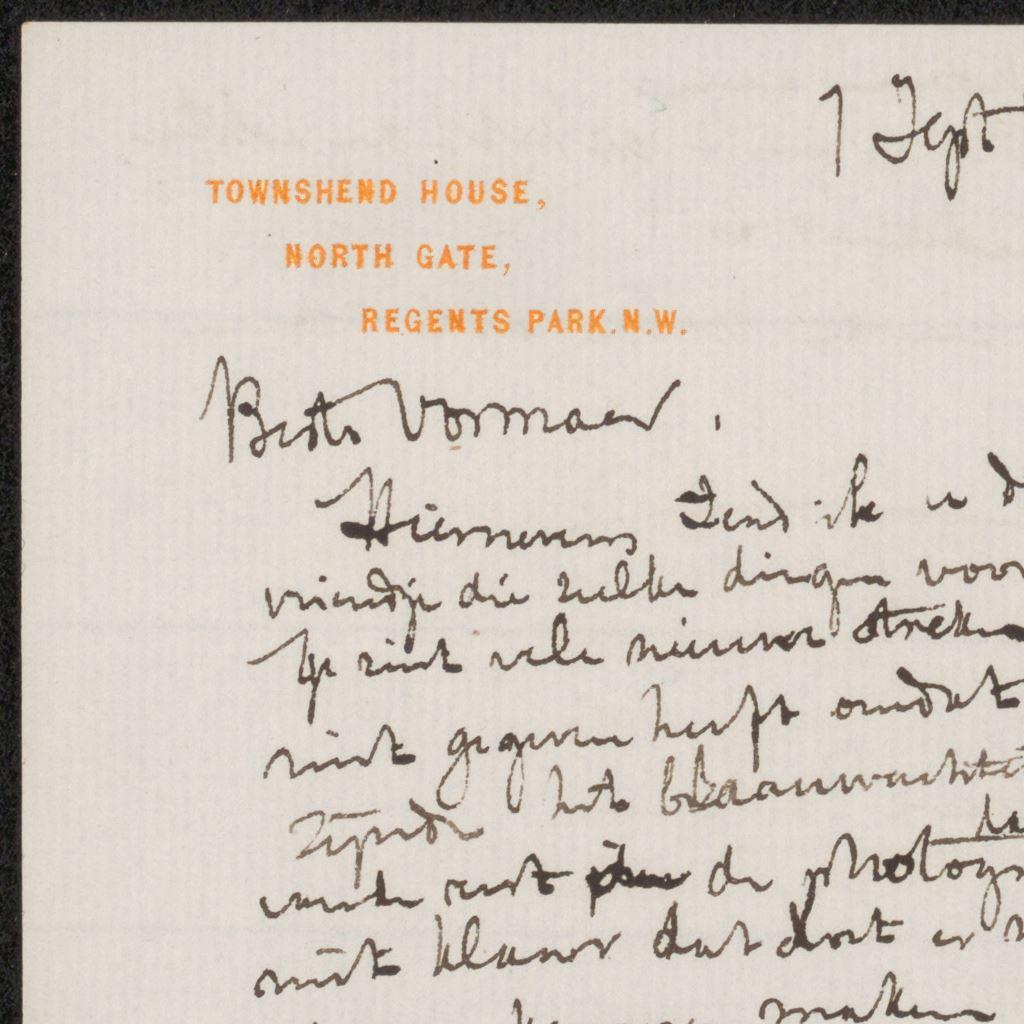 7 Sept
TOWNSHEND HOUSE,
NORTH GATE,
REGENTS PARK.N.W.
Beste Vosmaer,
Hiernevens Zend ik u d
vriendje die zulke dingen voor
Ge ziet vele nieuwe streken
niet gegeven heeft omdat
zijnde het blaauwachtt
rest de photogr
niet klaar dat doet er n
maken